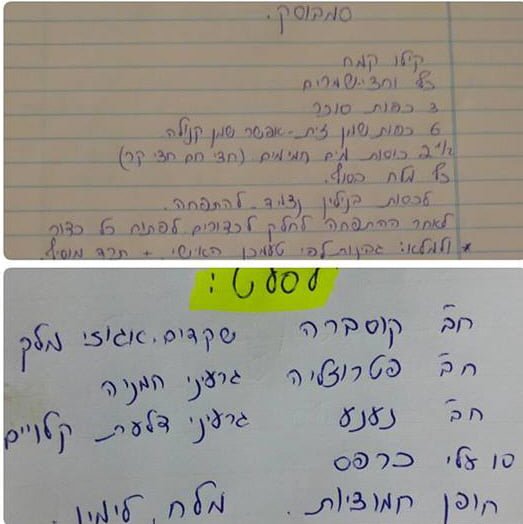 סמבוסק.
קילו קמח
כף וחצי-שמרים
3 כפות סוכר
6 כפות שמן זית-אפשר שמן קנולה.
2 1/2 כוסות מים חמימים (חצי חם חצי קר)
כף מלח בסוף.
לכסות בניילון נצמד-להתפחה.
לאחר ההתפחה לחלק לכדורים לפתוח כל כדור
* ולמלא: גבינות לפי טעמכן האישי + תרד מוסיף.
לסלט:
חב' קוסברה שקדים. אגוזי מלך
חב' פטרוזליה גרעיני חמניה
חב' נענע גרעיני דלעת קלויים
עלי כרפס
חופן חמוציות. מלח, לימון.